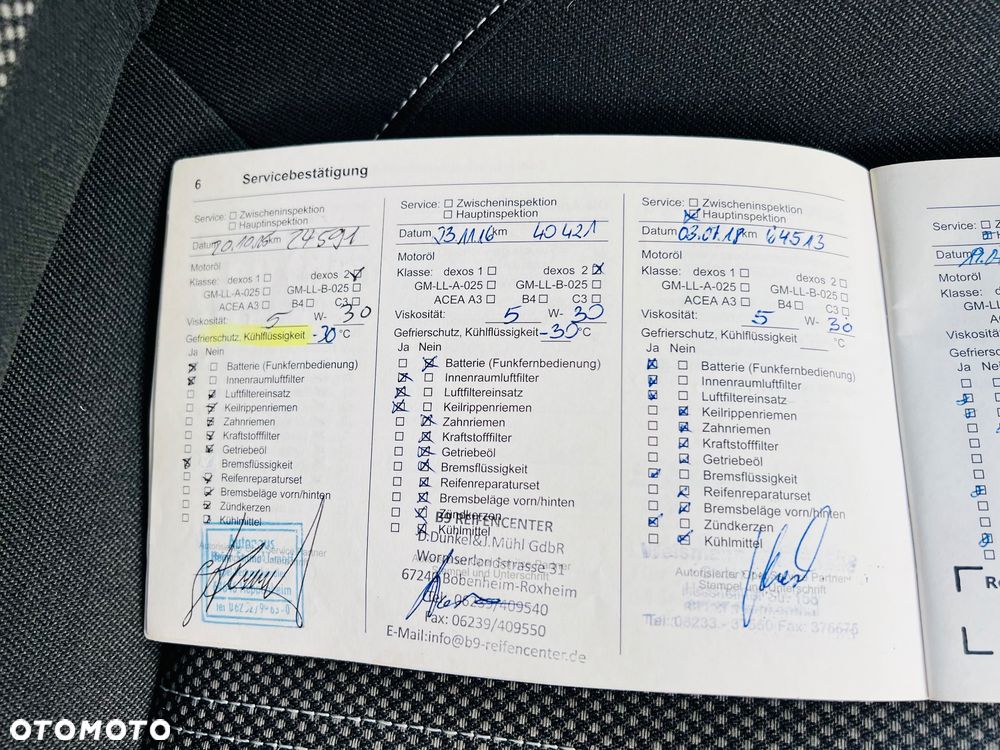 6 Servicebestätigung
Service: ☐ Zwischeninspektion
☐ Hauptinspektion
Datum 20.10.15 km 24591
Motoröl
Klasse: dexos 1 ☐ dexos 2 ☑
GM-LL-A-025 ☐ GM-LL-B-025 ☐
ACEA A3 ☐ B4 ☐ C3 ☐
Viskosität: 5 W- 30
Gefrierschutz, Kühlflüssigkeit -30 °C
Ja Nein
☒ ☐ Batterie (Funkfernbedienung)
☒ ☐ Innenraumluftfilter
☐ ☑ Luftfiltereinsatz
☐ ☑ Keilrippenriemen
☐ ☑ Zahnriemen
☐ ☑ Kraftstofffilter
☐ ☑ Getriebeöl
☒ ☐ Bremsflüssigkeit
☐ ☑ Reifenreparaturset
☐ ☑ Bremsbeläge vorn/hinten
☐ ☑ Zündkerzen
☐ ☑ Kühlmittel
Autohaus
Service: ☐ Zwischeninspektion
☐ Hauptinspektion
Datum 23.11.16 km 40421
Motoröl
Klasse: dexos 1 ☐ dexos 2 ☒
GM-LL-A-025 ☐ GM-LL-B-025 ☐
ACEA A3 ☐ B4 ☐ C3 ☐
Viskosität: 5 W- 30
Gefrierschutz, Kühlflüssigkeit -30 °C
Ja Nein
☐ ☒ Batterie (Funkfernbedienung)
☒ ☐ Innenraumluftfilter
☒ ☐ Luftfiltereinsatz
☒ ☐ Keilrippenriemen
☐ ☒ Zahnriemen
☐ ☒ Kraftstofffilter
☐ ☒ Getriebeöl
☐ ☒ Bremsflüssigkeit
☐ ☒ Reifenreparaturset
☐ ☒ Bremsbeläge vorn/hinten
☐ ☒ Zündkerzen
☐ ☒ Kühlmittel
B9 REIFENCENTER
D.Dunkel&J.Mühl GdbR
Wormserlandstrasse 31
Stempel und Unterschrift
67240 Bobenheim-Roxheim
Tel: 06239/409540
Fax: 06239/409550
E-Mail:info@b9-reifencenter.de
Service: ☐ Zwischeninspektion
☒ Hauptinspektion
Datum 03.07.18 km 64513
Motoröl
Klasse: dexos 1 ☐ dexos 2 ☐
GM-LL-A-025 ☐ GM-LL-B-025 ☐
ACEA A3 ☐ B4 ☐ C3 ☐
Viskosität: 5 W- 30
Gefrierschutz, Kühlflüssigkeit ___ °C
Ja Nein
☒ ☐ Batterie (Funkfernbedienung)
☒ ☐ Innenraumluftfilter
☒ ☐ Luftfiltereinsatz
☐ ☒ Keilrippenriemen
☐ ☒ Zahnriemen
☐ ☒ Kraftstofffilter
☐ ☒ Getriebeöl
☒ ☐ Bremsflüssigkeit
☐ ☒ Reifenreparaturset
☐ ☒ Bremsbeläge vorn/hinten
☒ ☐ Zündkerzen
☐ ☒ Kühlmittel
Autorisierter Opel Service Partner
Stempel und Unterschrift
Tel.: 06233 - Fax: 376675
Service: ☐ Z
Datum
Motoröl
Klasse: d
GM-L
AC
Viskosität
Gefriersc
Ja Ne
R
OTOMOTO